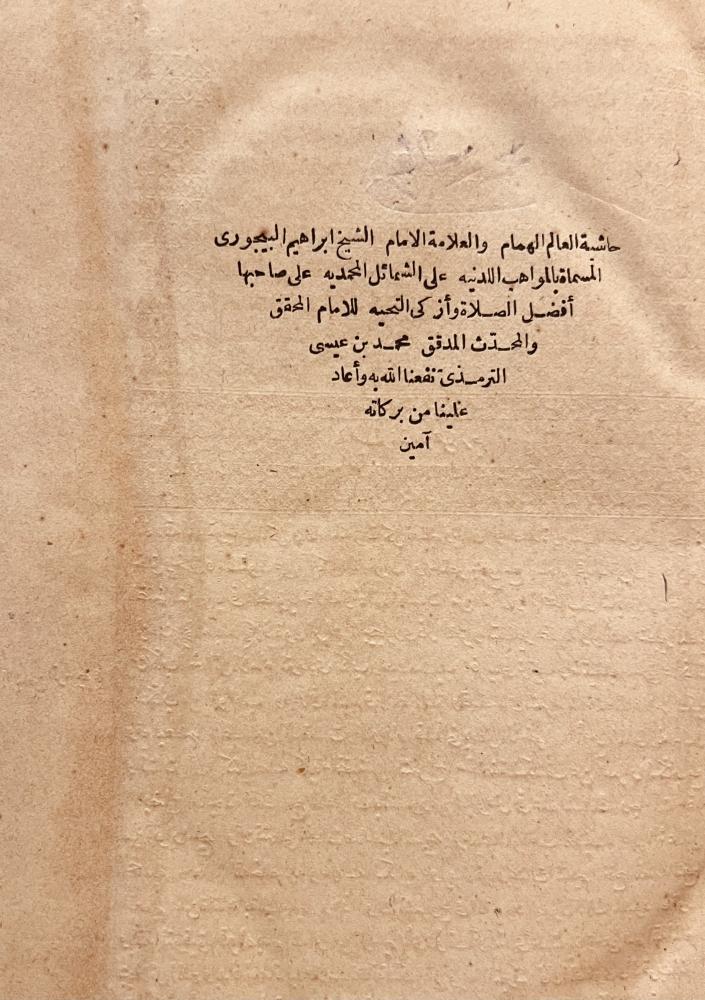 حاشية العالم الهمام والعلامة الامام الشيخ ابراهيم البيجورى
المسماة بالمواهب اللدنيه على الشمائل المحمديه على صاحبها
أفضل الصلاة وأزكى التحيه للامام المحقق
والمحدّث المدقق محمد بن عيسى
الترمذى نفعنا الله به وأعاد
علينا من بركاته
آمين